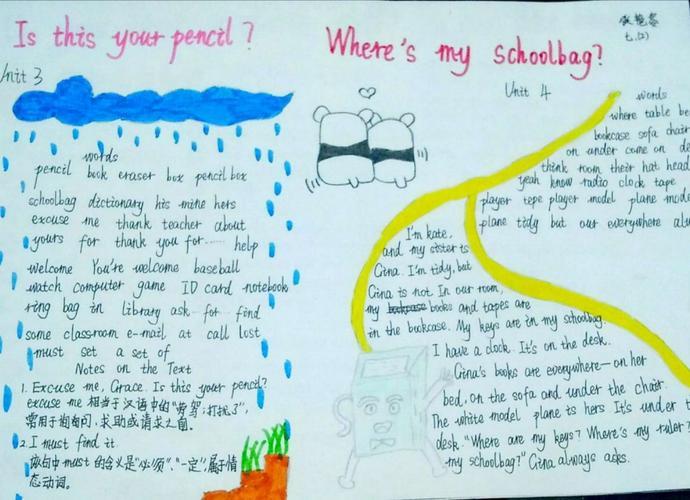 Is this your pencil?
Unit 3
words
pencil book eraser box pencil box
schoolbag dictionary his mine hers
excuse me thank teacher about
yours for thank you for…… help
welcome You're welcome baseball
watch computer game ID card notebook
ring bag in library ask for find
some classroom e-mail at call lost
must set a set of
Notes on the Text
1. Excuse me, Grace. Is this your pencil?
excuse me 相当于汉语中的"劳驾;打扰了",
常用于询问、求助或请求之前。
2. I must find it.
该句中must的含义是"必须","一定",属于情
态动词。
Where's my schoolbag?
七.(2)
Unit 4
words
where table be
bookcase sofa chair
on under come on de
think room their hat head
yeah know radio clock tape
player tepe player model plane mode
plane tidy but our everywhere alw
I'm kate,
and my sister is
Gina. I'm tidy, but
Gina is not. In our room,
my books and tapes are
in the bookcase. My keys are in my schoolbag.
I have a clock. It's on the desk.
Gina's books are everywhere—on her
bed, on the sofa and under the chair.
The white model plane is hers It's under t
desk. "Where are my keys? Where's my ruler?
my schoolbag?" Gina always asks.